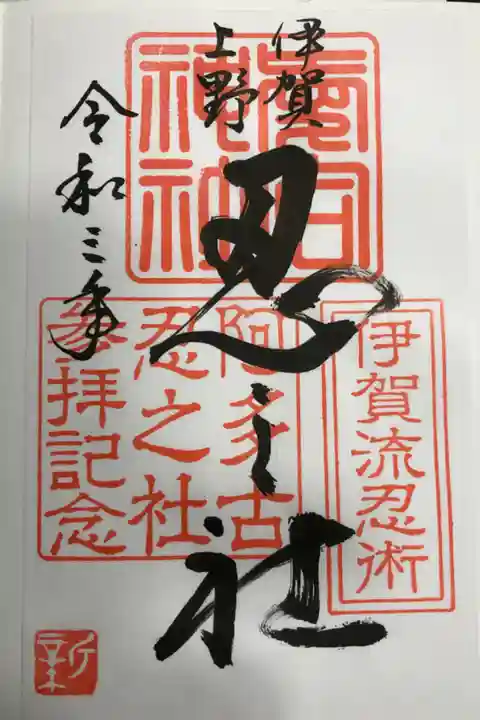 伊賀
上野
忍之社
令和三年
愛宕
神社
伊賀流忍術
阿多古
忍之社
参拝記念
新